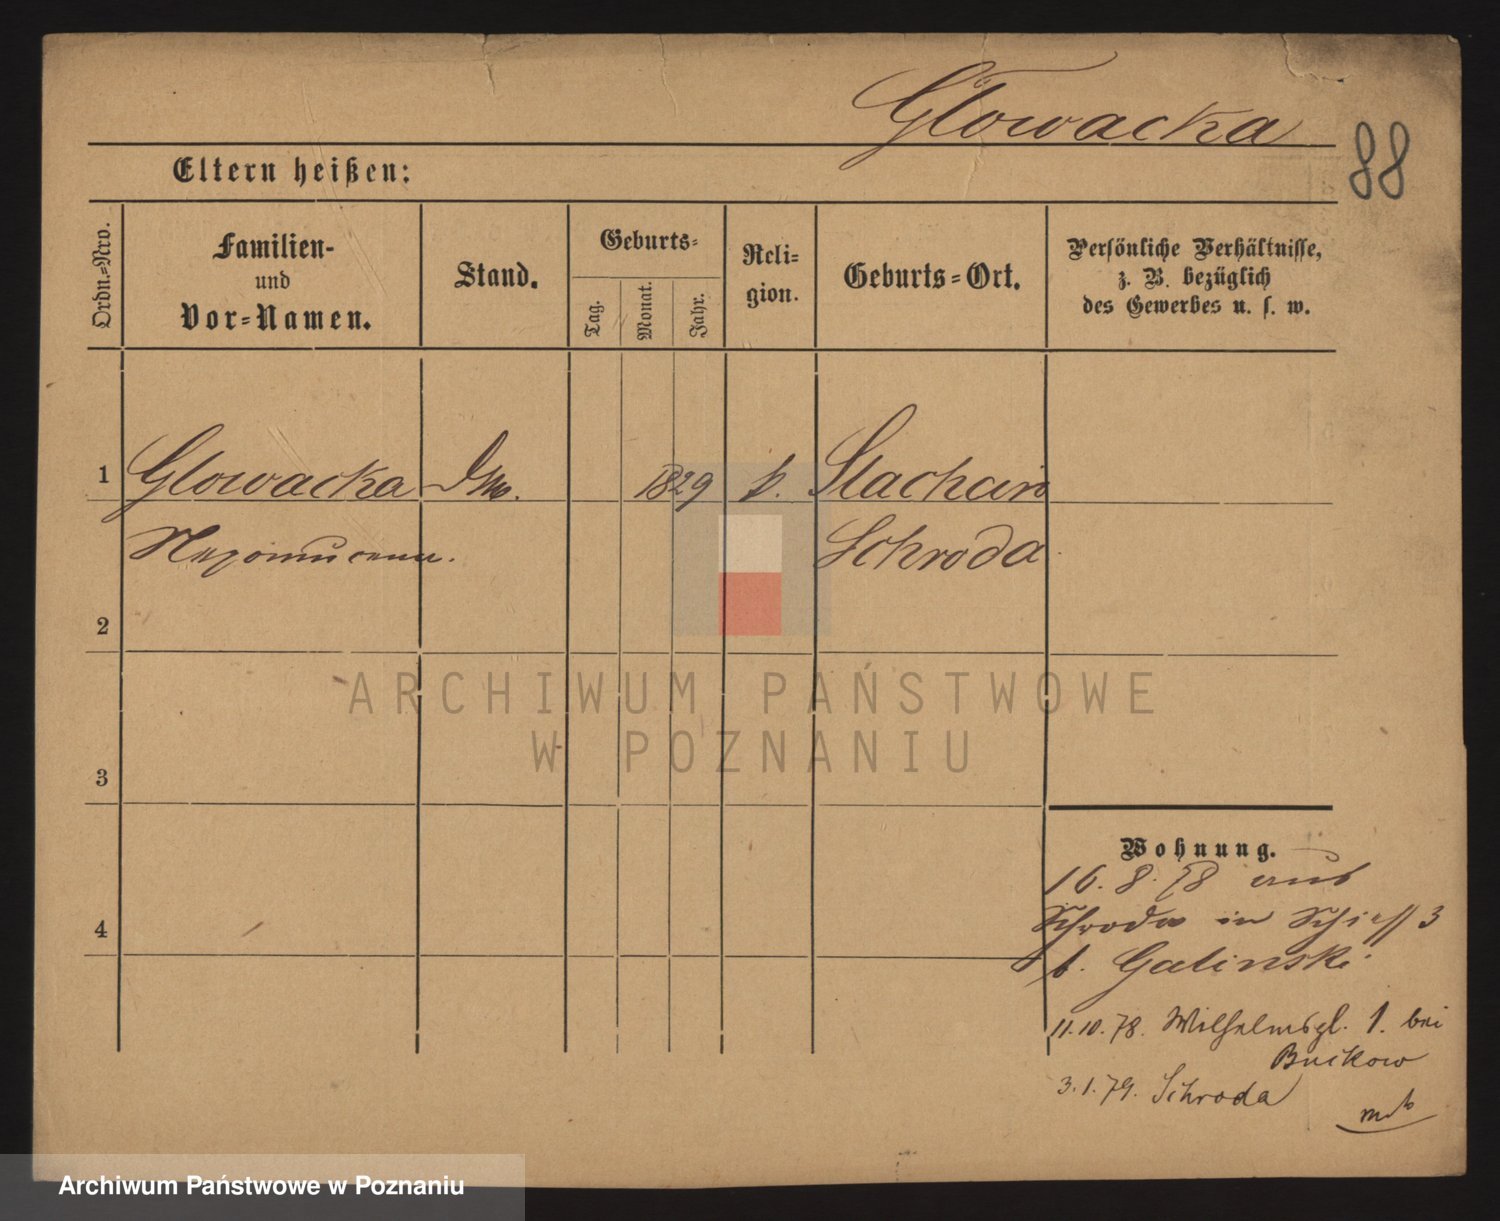 Głowacka
88
Eltern heißen:
Ordn.=Nro.
Familien-
und
Vor=Namen.
Stand.
Geburts=
Tag.
Monat.
Jahr.
Reli=
gion.
Geburts=Ort.
Persönliche Verhältnisse,
z. B. bezüglich
des Gewerbes u. s. w.
1 Glowacka 1829 k.
Nepomucena. Schroda
2
ARCHIWUM PAŃSTWOWE
W POZNANIU
3
Wohnung.
16. 8. 78 aus
4 Schroda in Schieß 3
b. Galinski.
11.10.78. Wilhelmspl. 1. bei
Buckow
3.1.79. Schroda
Archiwum Państwowe w Poznaniu